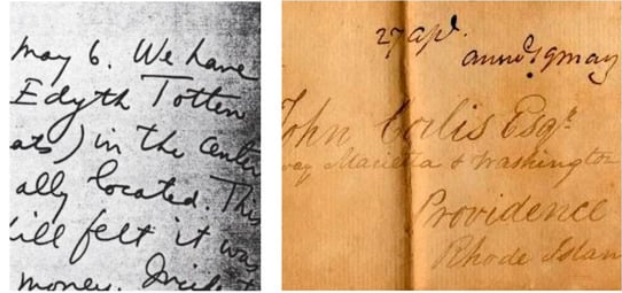 may 6. We have
Edyth Totten
ats) in the center
ally located. This
ill felt it was
money.
27 apl.
19 may
John Corlis Esqr.
Marietta & Washington
Providence
Rhode Islan